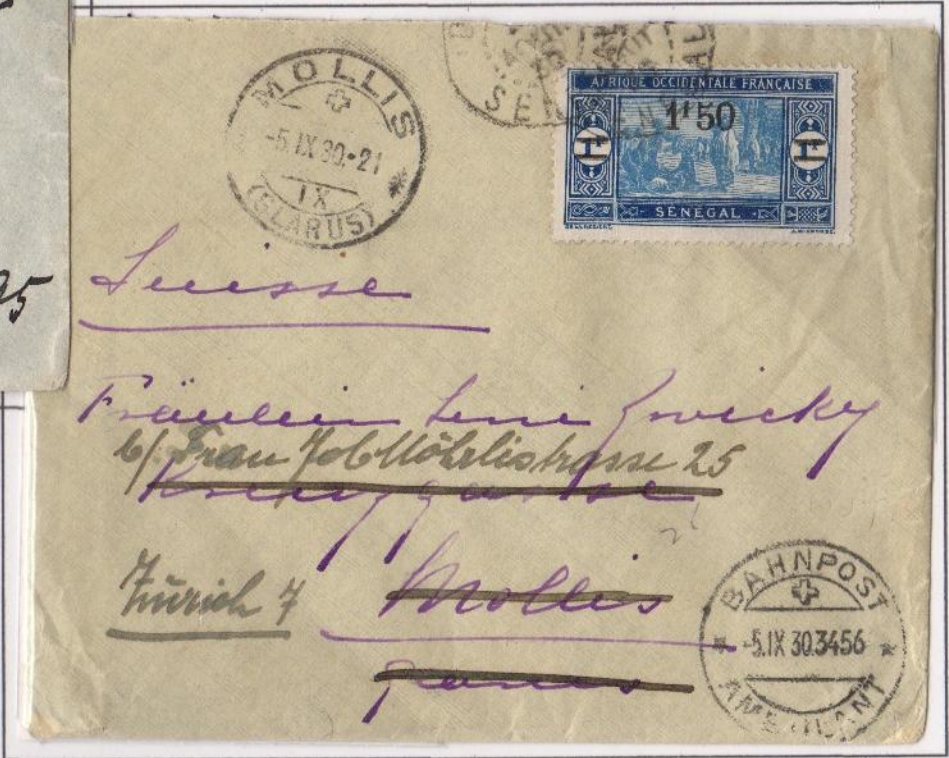 MOLLIS
-5.IX 30-21
IX
(GLARUS)
SÉN
AFRIQUE OCCIDENTALE FRANÇAISE
1F50
1F
SÉNÉGAL
95
Suisse
Fräulein Leni Zwicky
b/ Frau Job Möhrlistrasse 25
Kreuzgasse
Zürich 7
Mollis
BAHNPOST
-5.IX 30.3456
AMBULANT